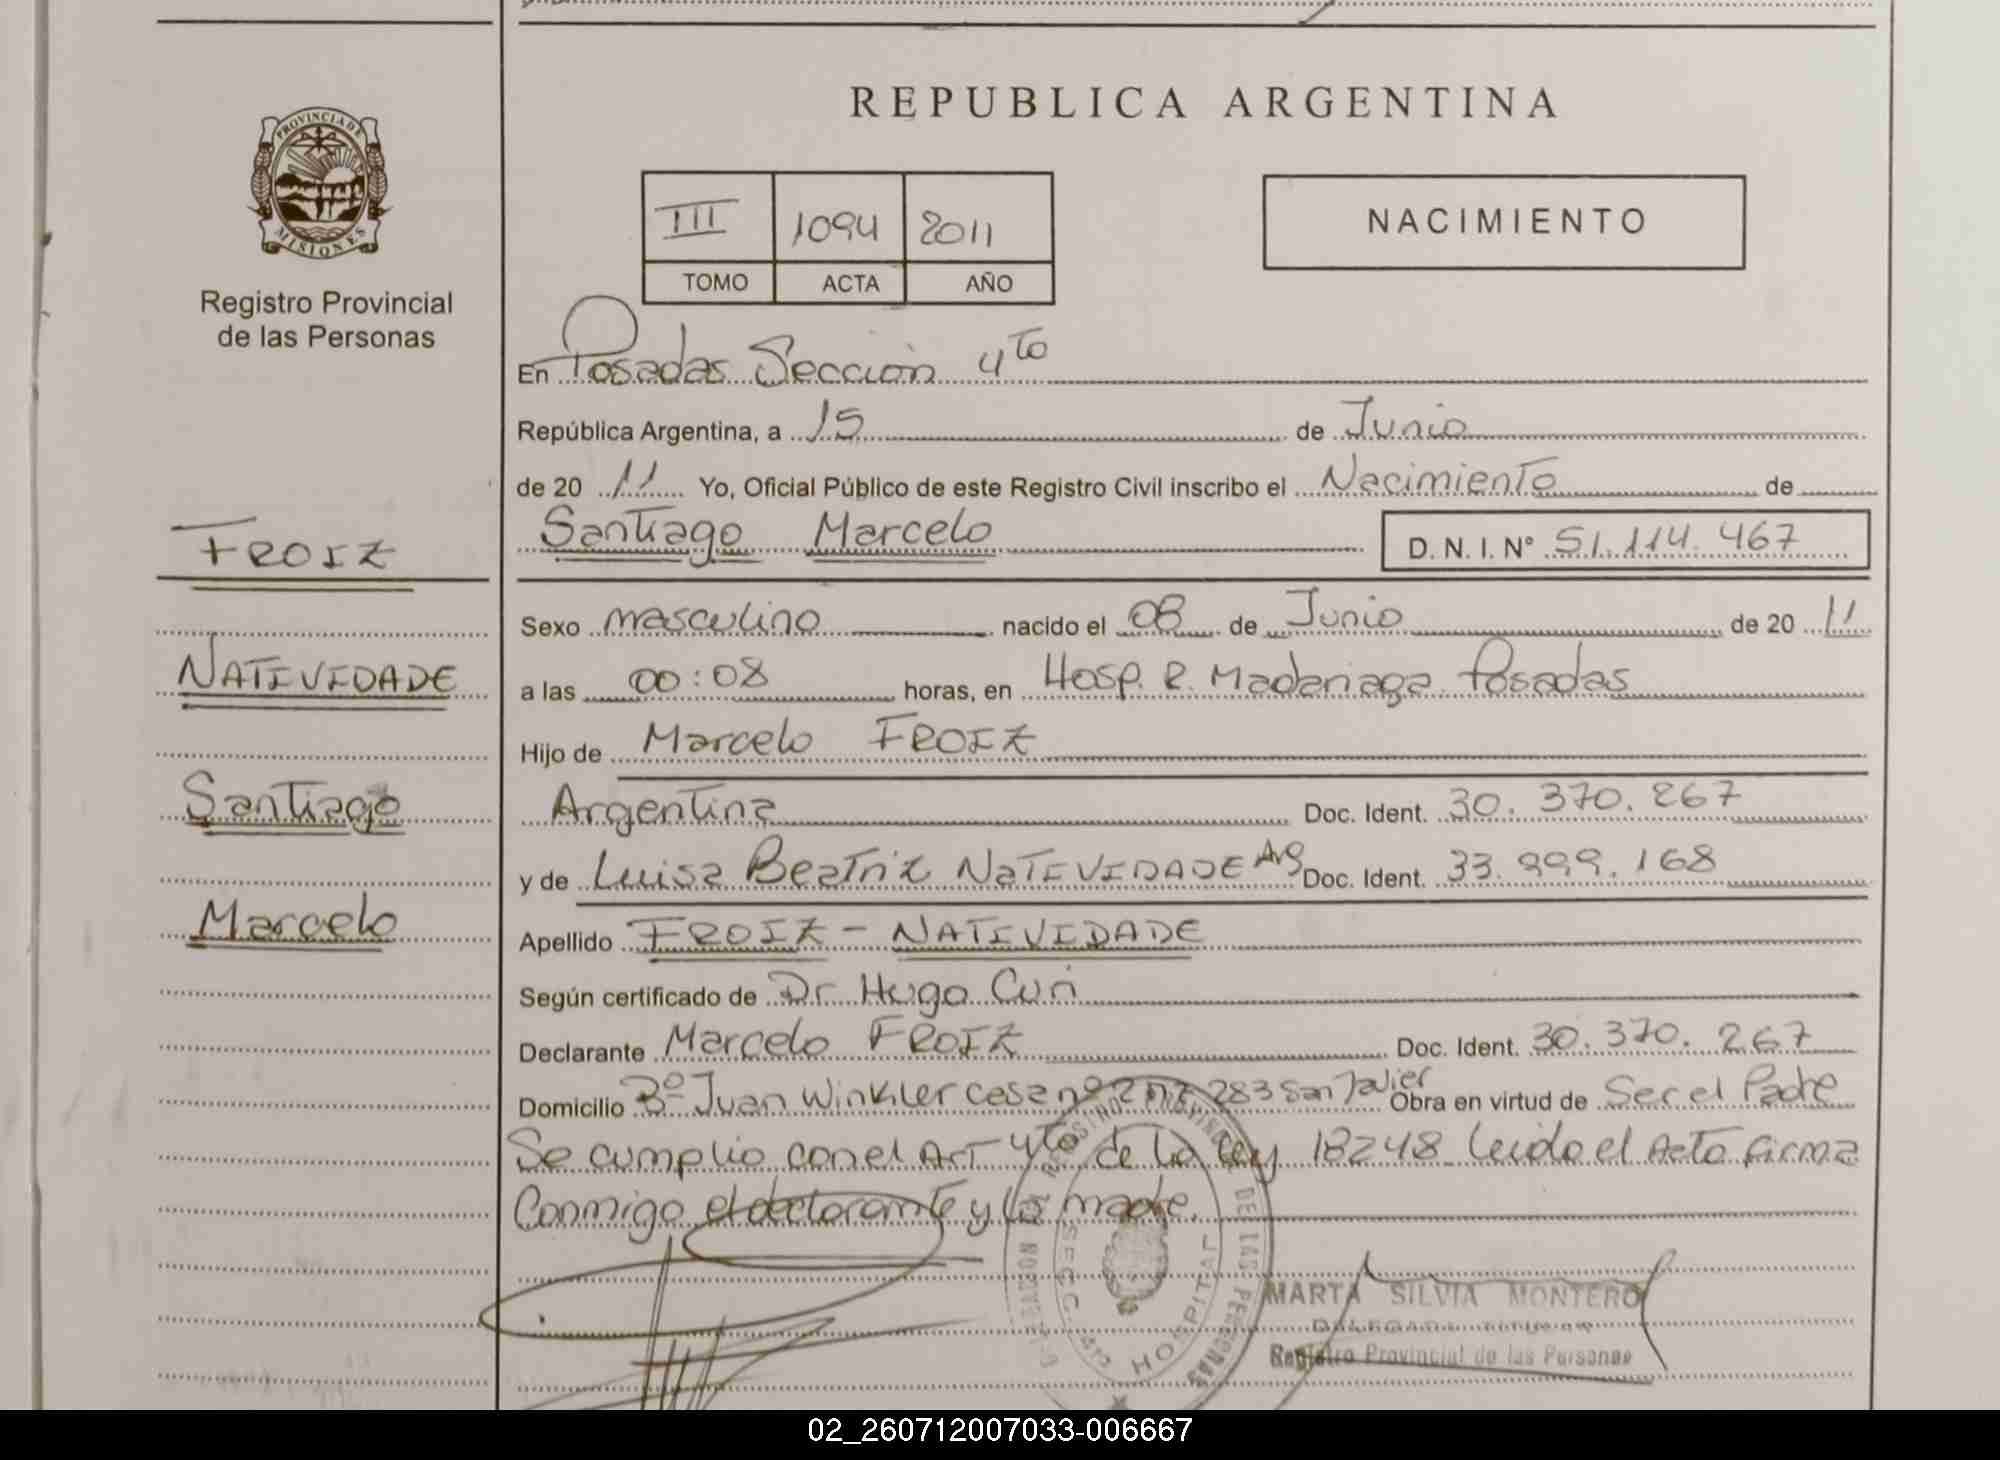 REPUBLICA ARGENTINA
PROVINCIA DE MISIONES
Registro Provincial
de las Personas
III 1094 2011
TOMO ACTA AÑO
NACIMIENTO
En Posadas Sección 4to
República Argentina, a 15 de Junio
de 20 11 Yo, Oficial Público de este Registro Civil inscribo el Nacimiento de
Santiago Marcelo D. N. I. Nº 51.114.467
FROIZ
Sexo masculino nacido el 08 de Junio de 20 11
NATIVIDADE
a las 00:08 horas, en Hosp. R. Madariaga Posadas
Hijo de Marcelo FROIZ
Santiago
Argentina Doc. Ident. 30.370.267
y de Luisa Beatriz NATIVIDADE Arg Doc. Ident. 33.999.168
Marcelo
Apellido FROIZ - NATIVIDADE
Según certificado de Dr Hugo Curi
Declarante Marcelo FROIZ Doc. Ident. 30.370.267
Domicilio Bº Juan Winkler casa nº 2 mz 283 San Javier Obra en virtud de Ser el Padre
Se cumplio con el Art 4to de la Ley 18248 leido el Acta firma
Conmigo el declarante y la madre.
REGISTRO PROVINCIAL DE LAS PERSONAS
SECC. 4ta HOSPITAL
MARTA SILVIA MONTERO
DELEGADA TITULAR
Registro Provincial de las Personas
02_260712007033-006667